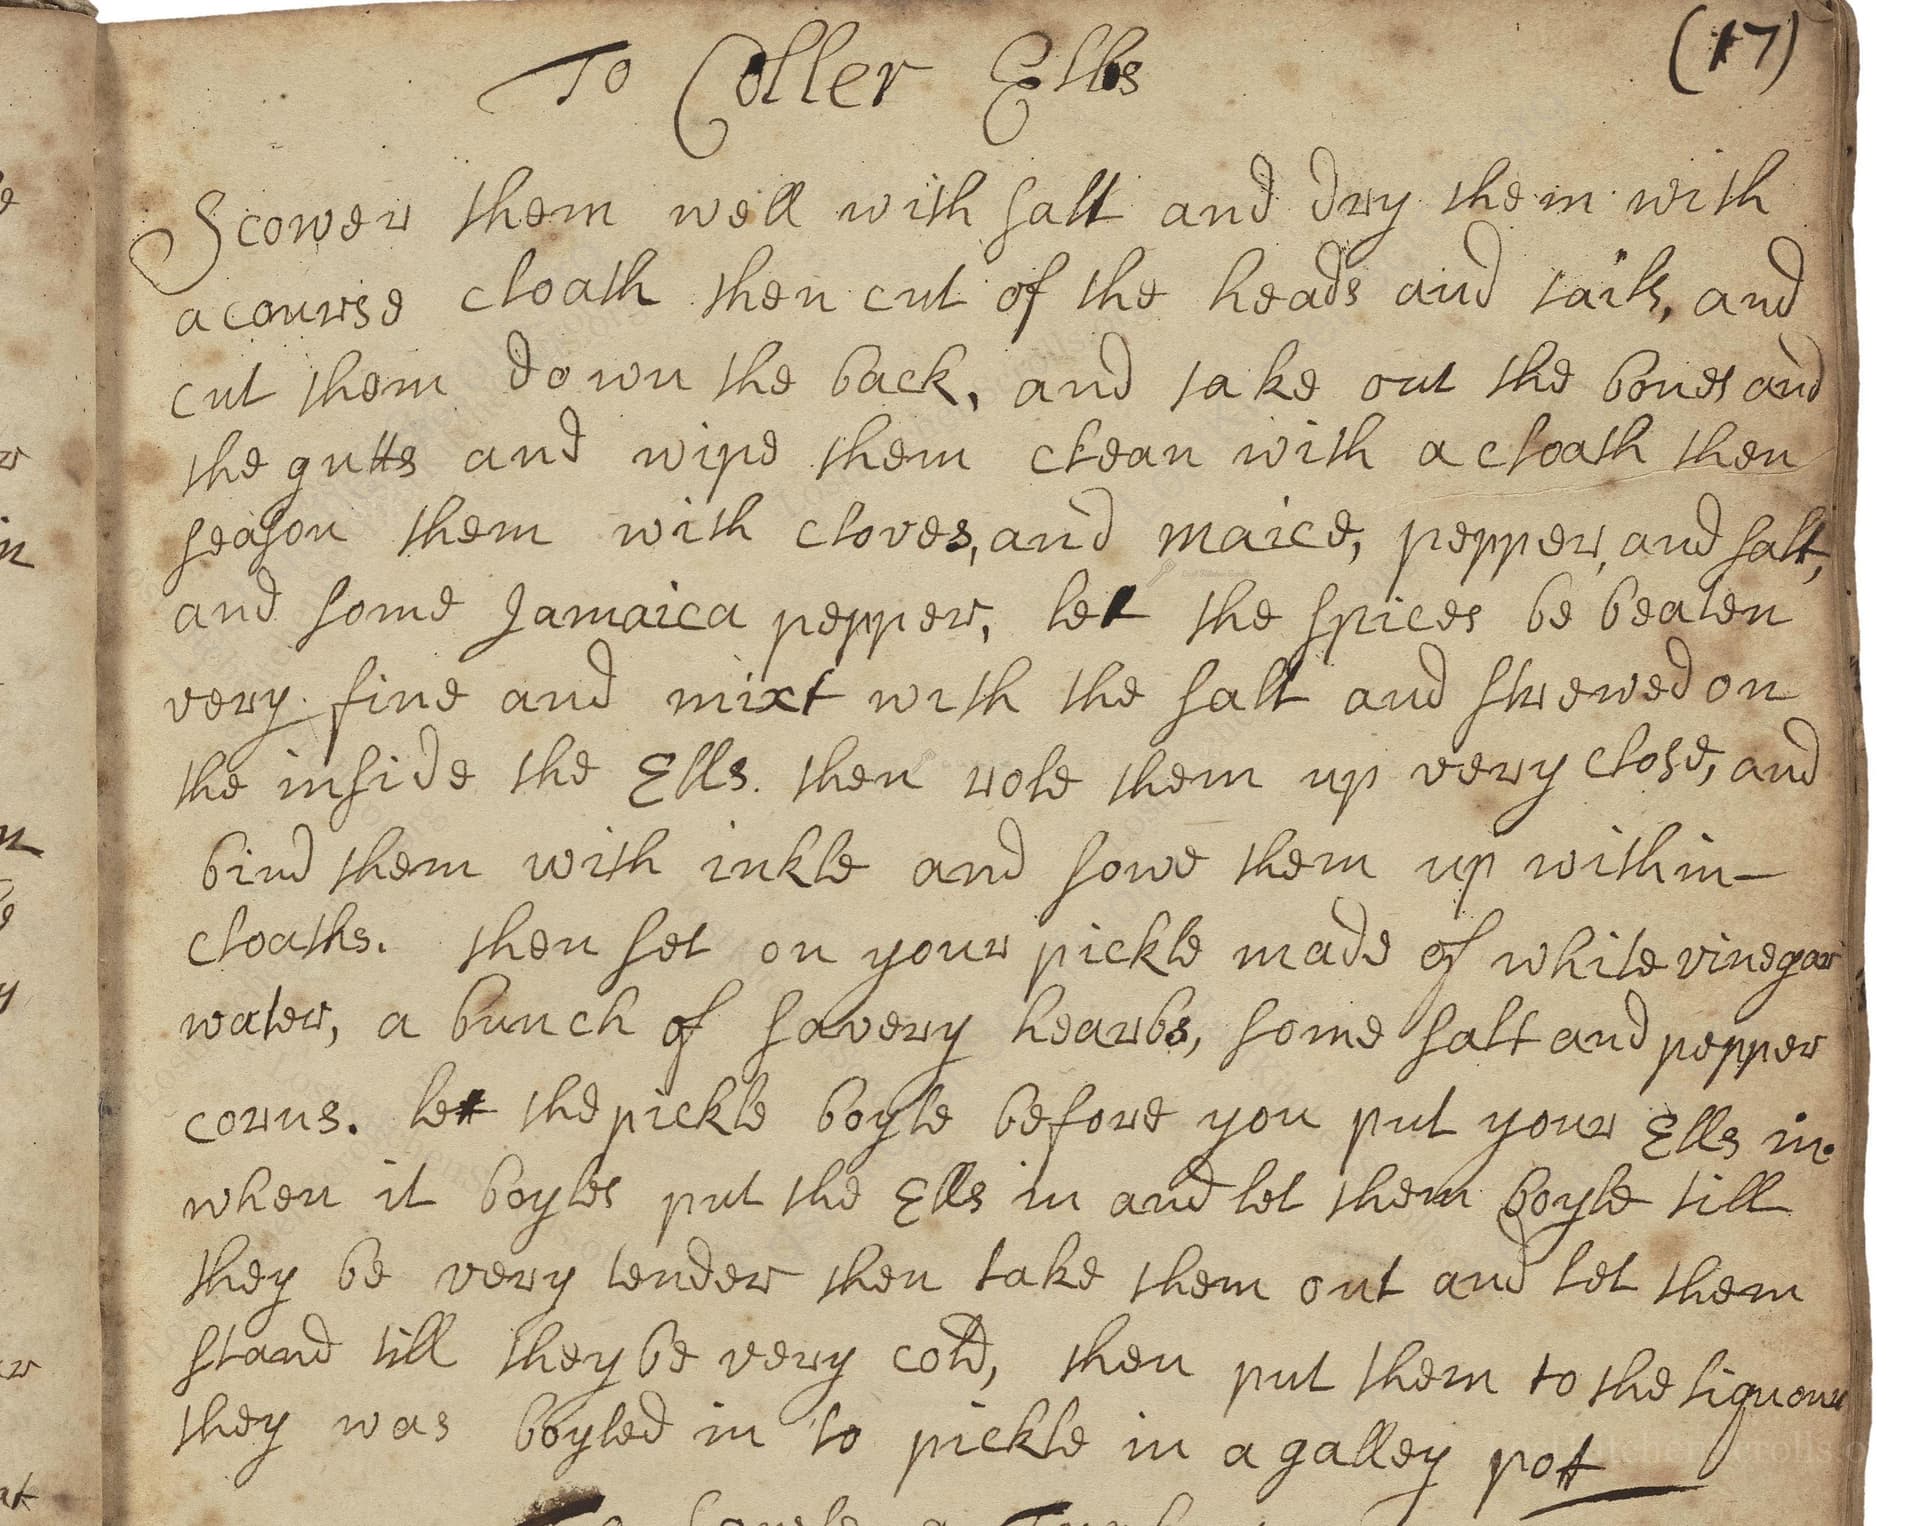 To Coller Ells
(17)
Scower them well with salt and dry them with
a course cloath then cut of the heads and tails, and
cut them down the back, and take out the bones and
the gutts and wipe them clean with a cloath then
season them with cloves, and maice, pepper, and salt,
and some Jamaica pepper, let the spices be beaten
very fine and mixt with the salt and strewed on
the inside the Ells. then role them up very close, and
bind them with inkle and sowe them up within
cloaths. then set on your pickle made of white vinegar
water, a bunch of savery hearbs, some salt and pepper
corns. let the pickle boyle before you put your Ells in.
when it boyles put the Ells in and let them boyle till
they be very tender then take them out and let them
stand till they be very cold, then put them to the liquour
they was boyled in to pickle in a galley pott